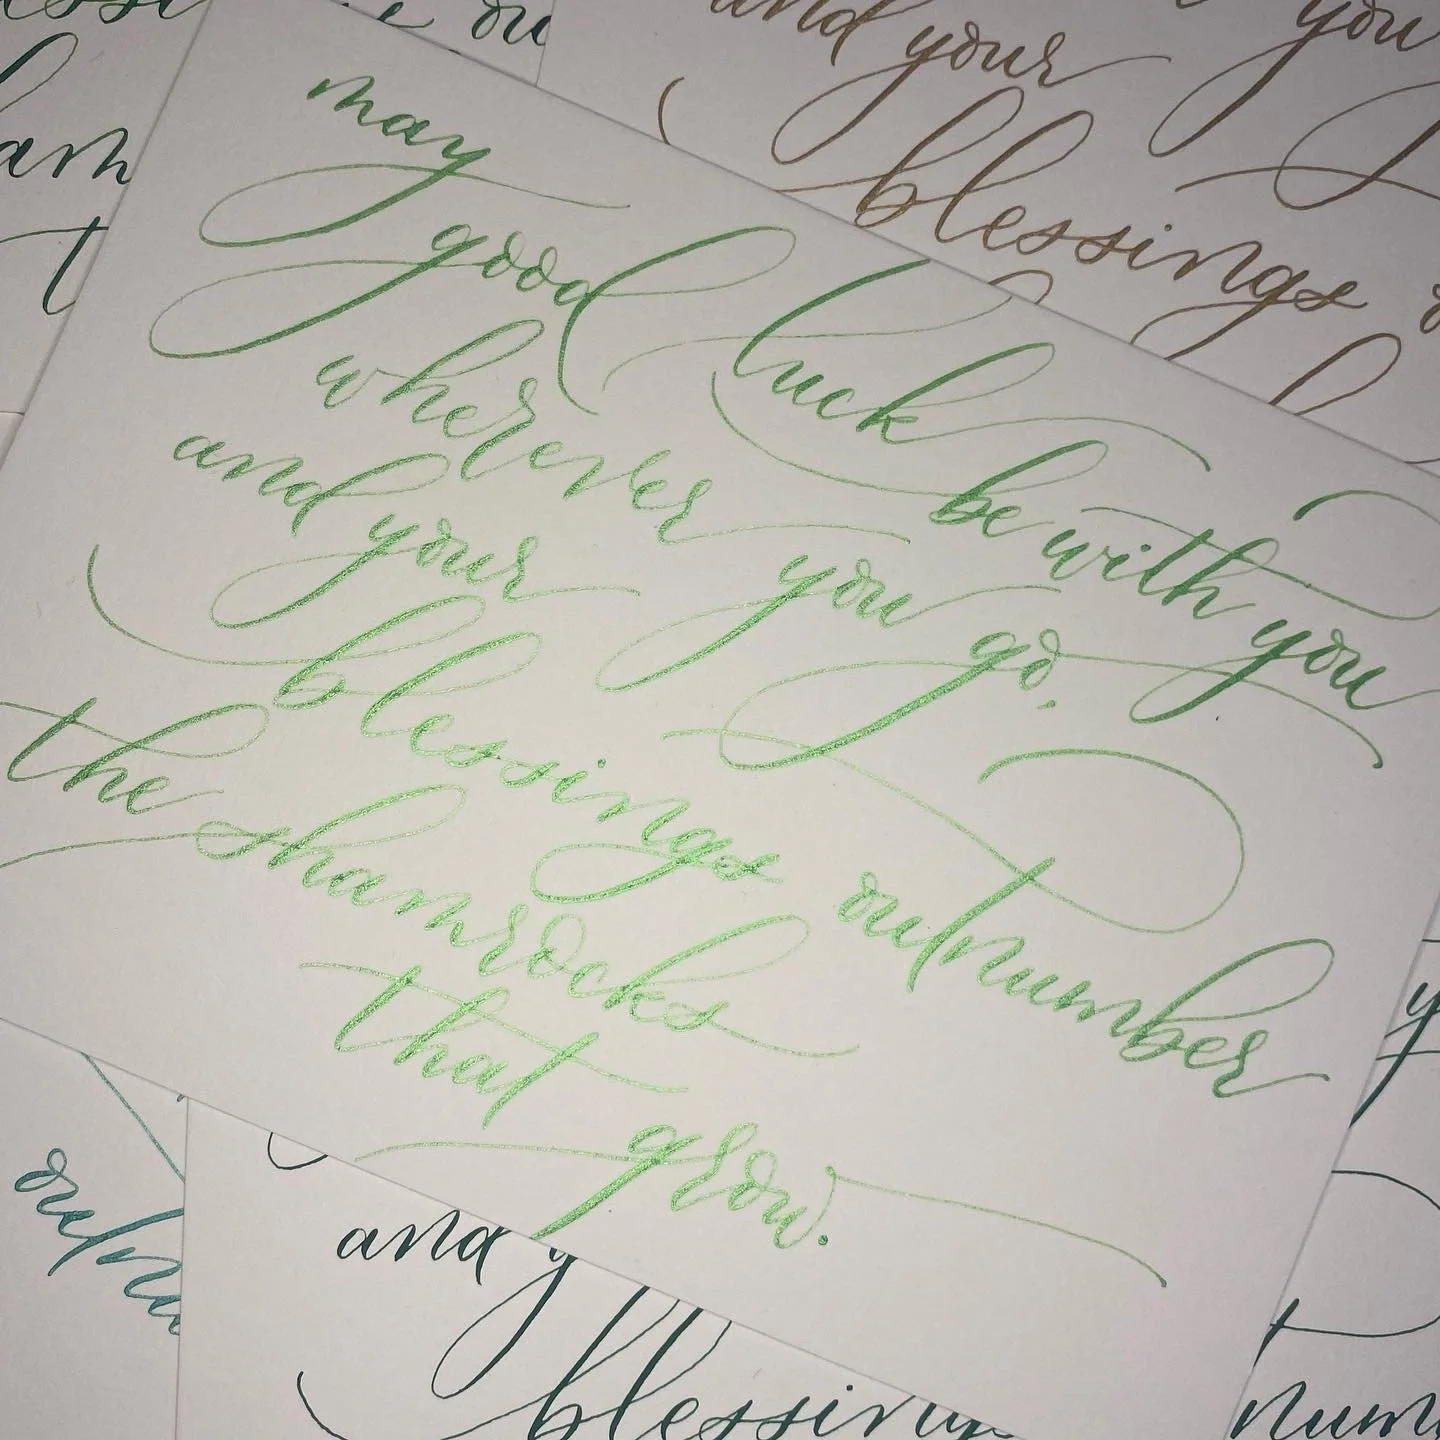 may
good luck be with you
wherever you go.
and your
blessings outnumber
the shamrocks
that
grow.
and your you
blessings
and
blessings